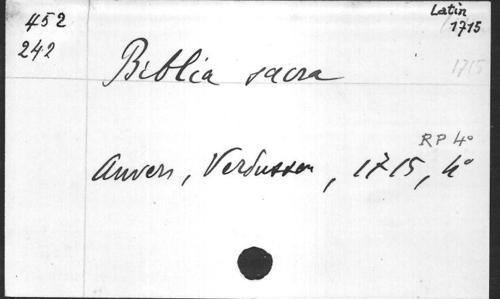 452
242
Latin
1715
Biblia sacra
1715
RP 4°
Anvers, Verdussen, 1715, 4°